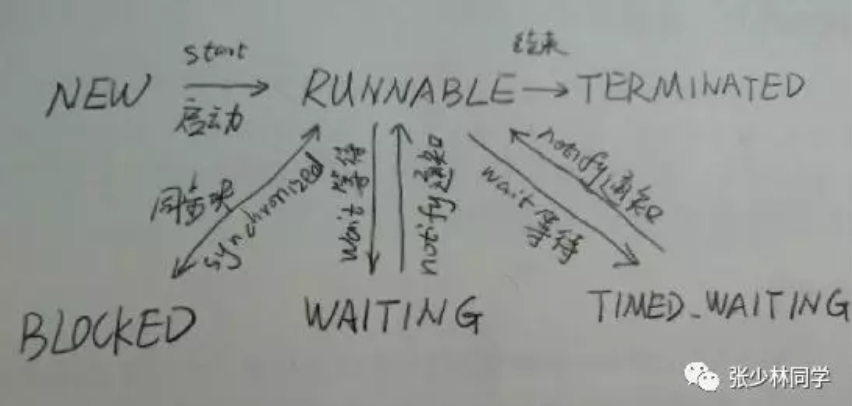 start
结束
NEW
RUNNABLE
TERMINATED
启动
同步块
synchronized
wait 等待
notify通知
wait 等待
notify通知
BLOCKED
WAITING
TIMED_WAITING
张少林同学